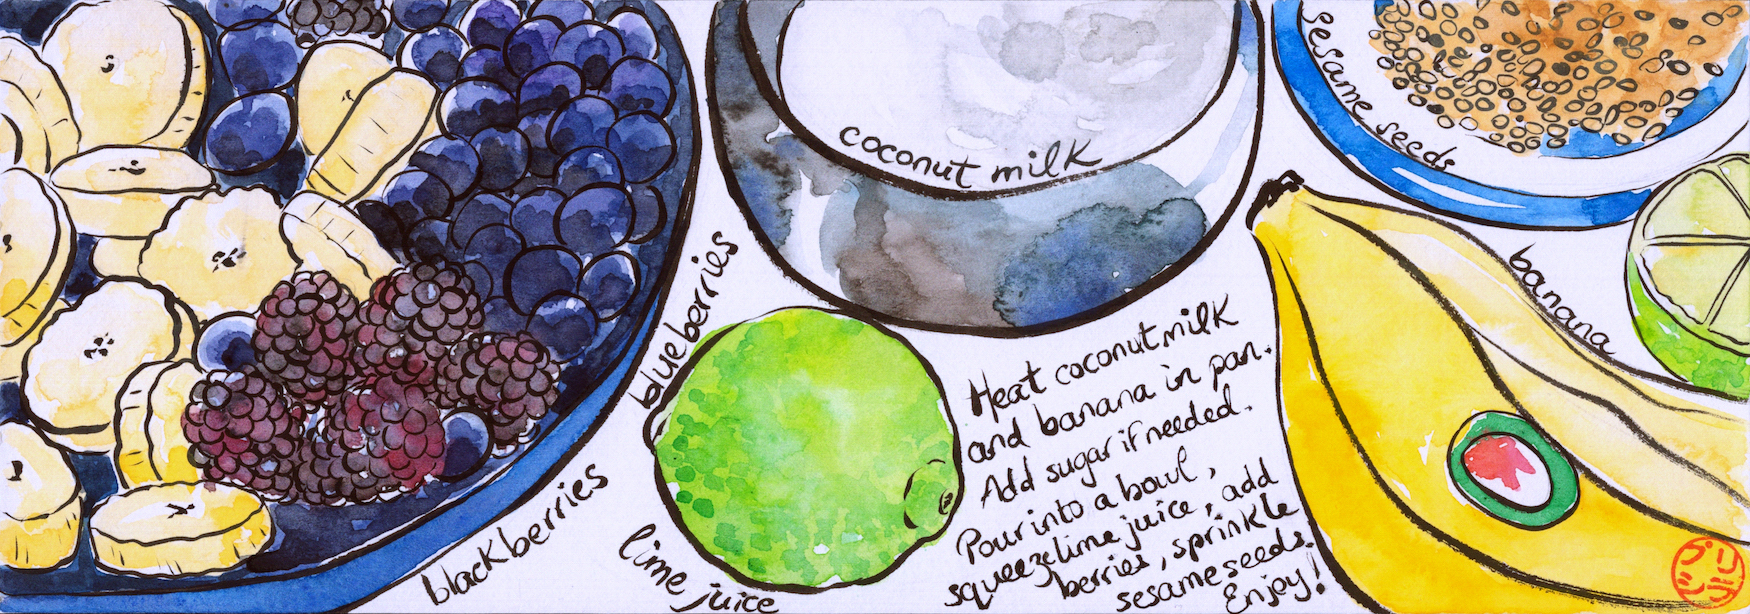 blueberries
blackberries
lime juice
coconut milk
sesame seeds
banana
Heat coconut milk
and banana in pan.
Add sugar if needed.
Pour into a bowl,
squeeze lime juice, add
berries, sprinkle
sesame seeds.
Enjoy!